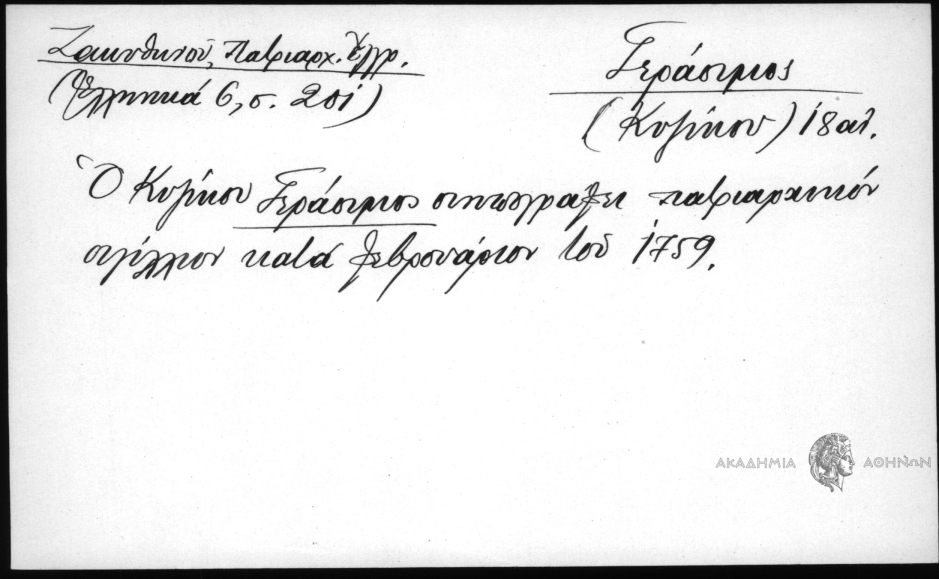 Ζακυθηνοῦ, Πατριαρχ. Ἔγγρ.
(Ἑλληνικά 6, σ. 201)
Γεράσιμος
(Κυζίκου) 18 αἰ.
Ὁ Κυζίκου Γεράσιμος συνυπογράφει πατριαρχικόν
σιγίλλιον κατά Φεβρουάριον τοῦ 1759.
ΑΚΑΔΗΜΙΑ ΑΘΗΝΩΝ